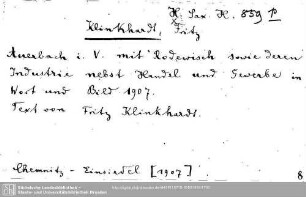 H. Sax. H. 859 p
Klinkhardt, Fritz
Auerbach i. V. mit Rodewisch sowie deren
Industrie nebst Handel und Gewerbe in
Wort und Bild 1907.
Text von Fritz Klinkhardt.
Chemnitz - Einsiedel [1907]
8
Sächsische Landesbibliothek -
Staats- und Universitätsbibliothek Dresden